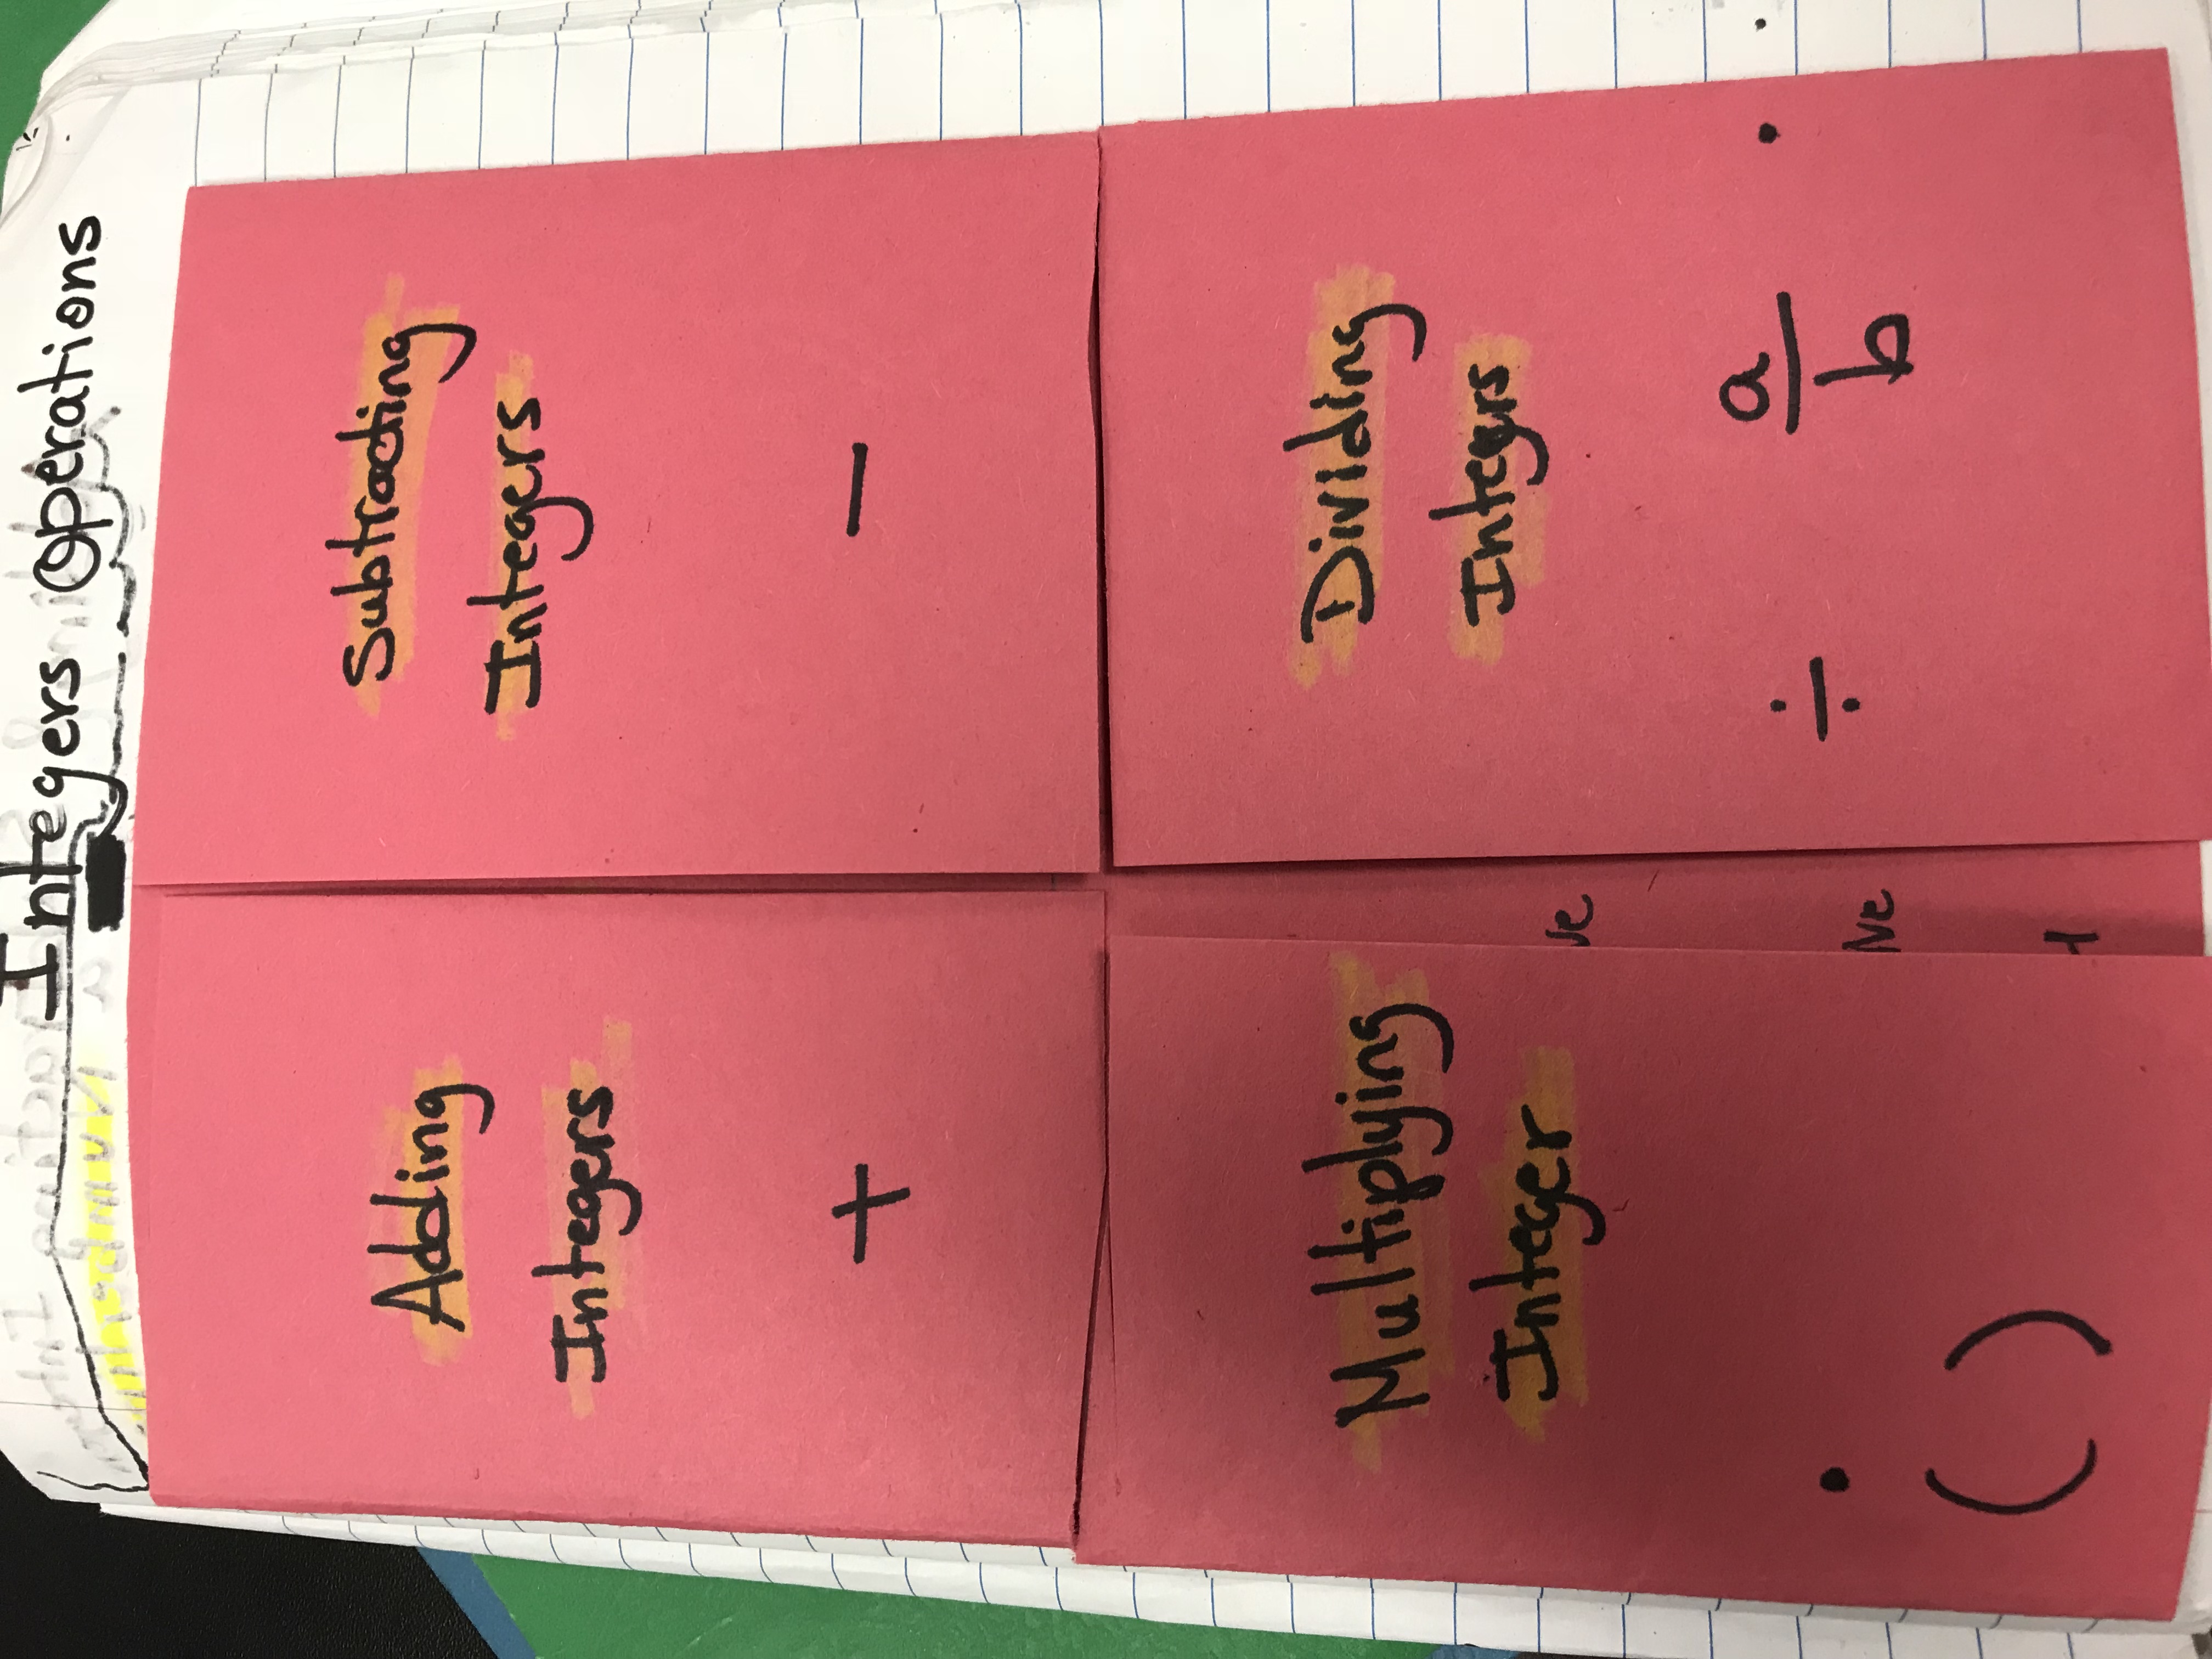 Integers Operations
Adding
Integers
+
Subtracting
Integers
−
Multiplying
Integer
•
( )
Dividing
Integers
÷ a/b •
ve
Ne